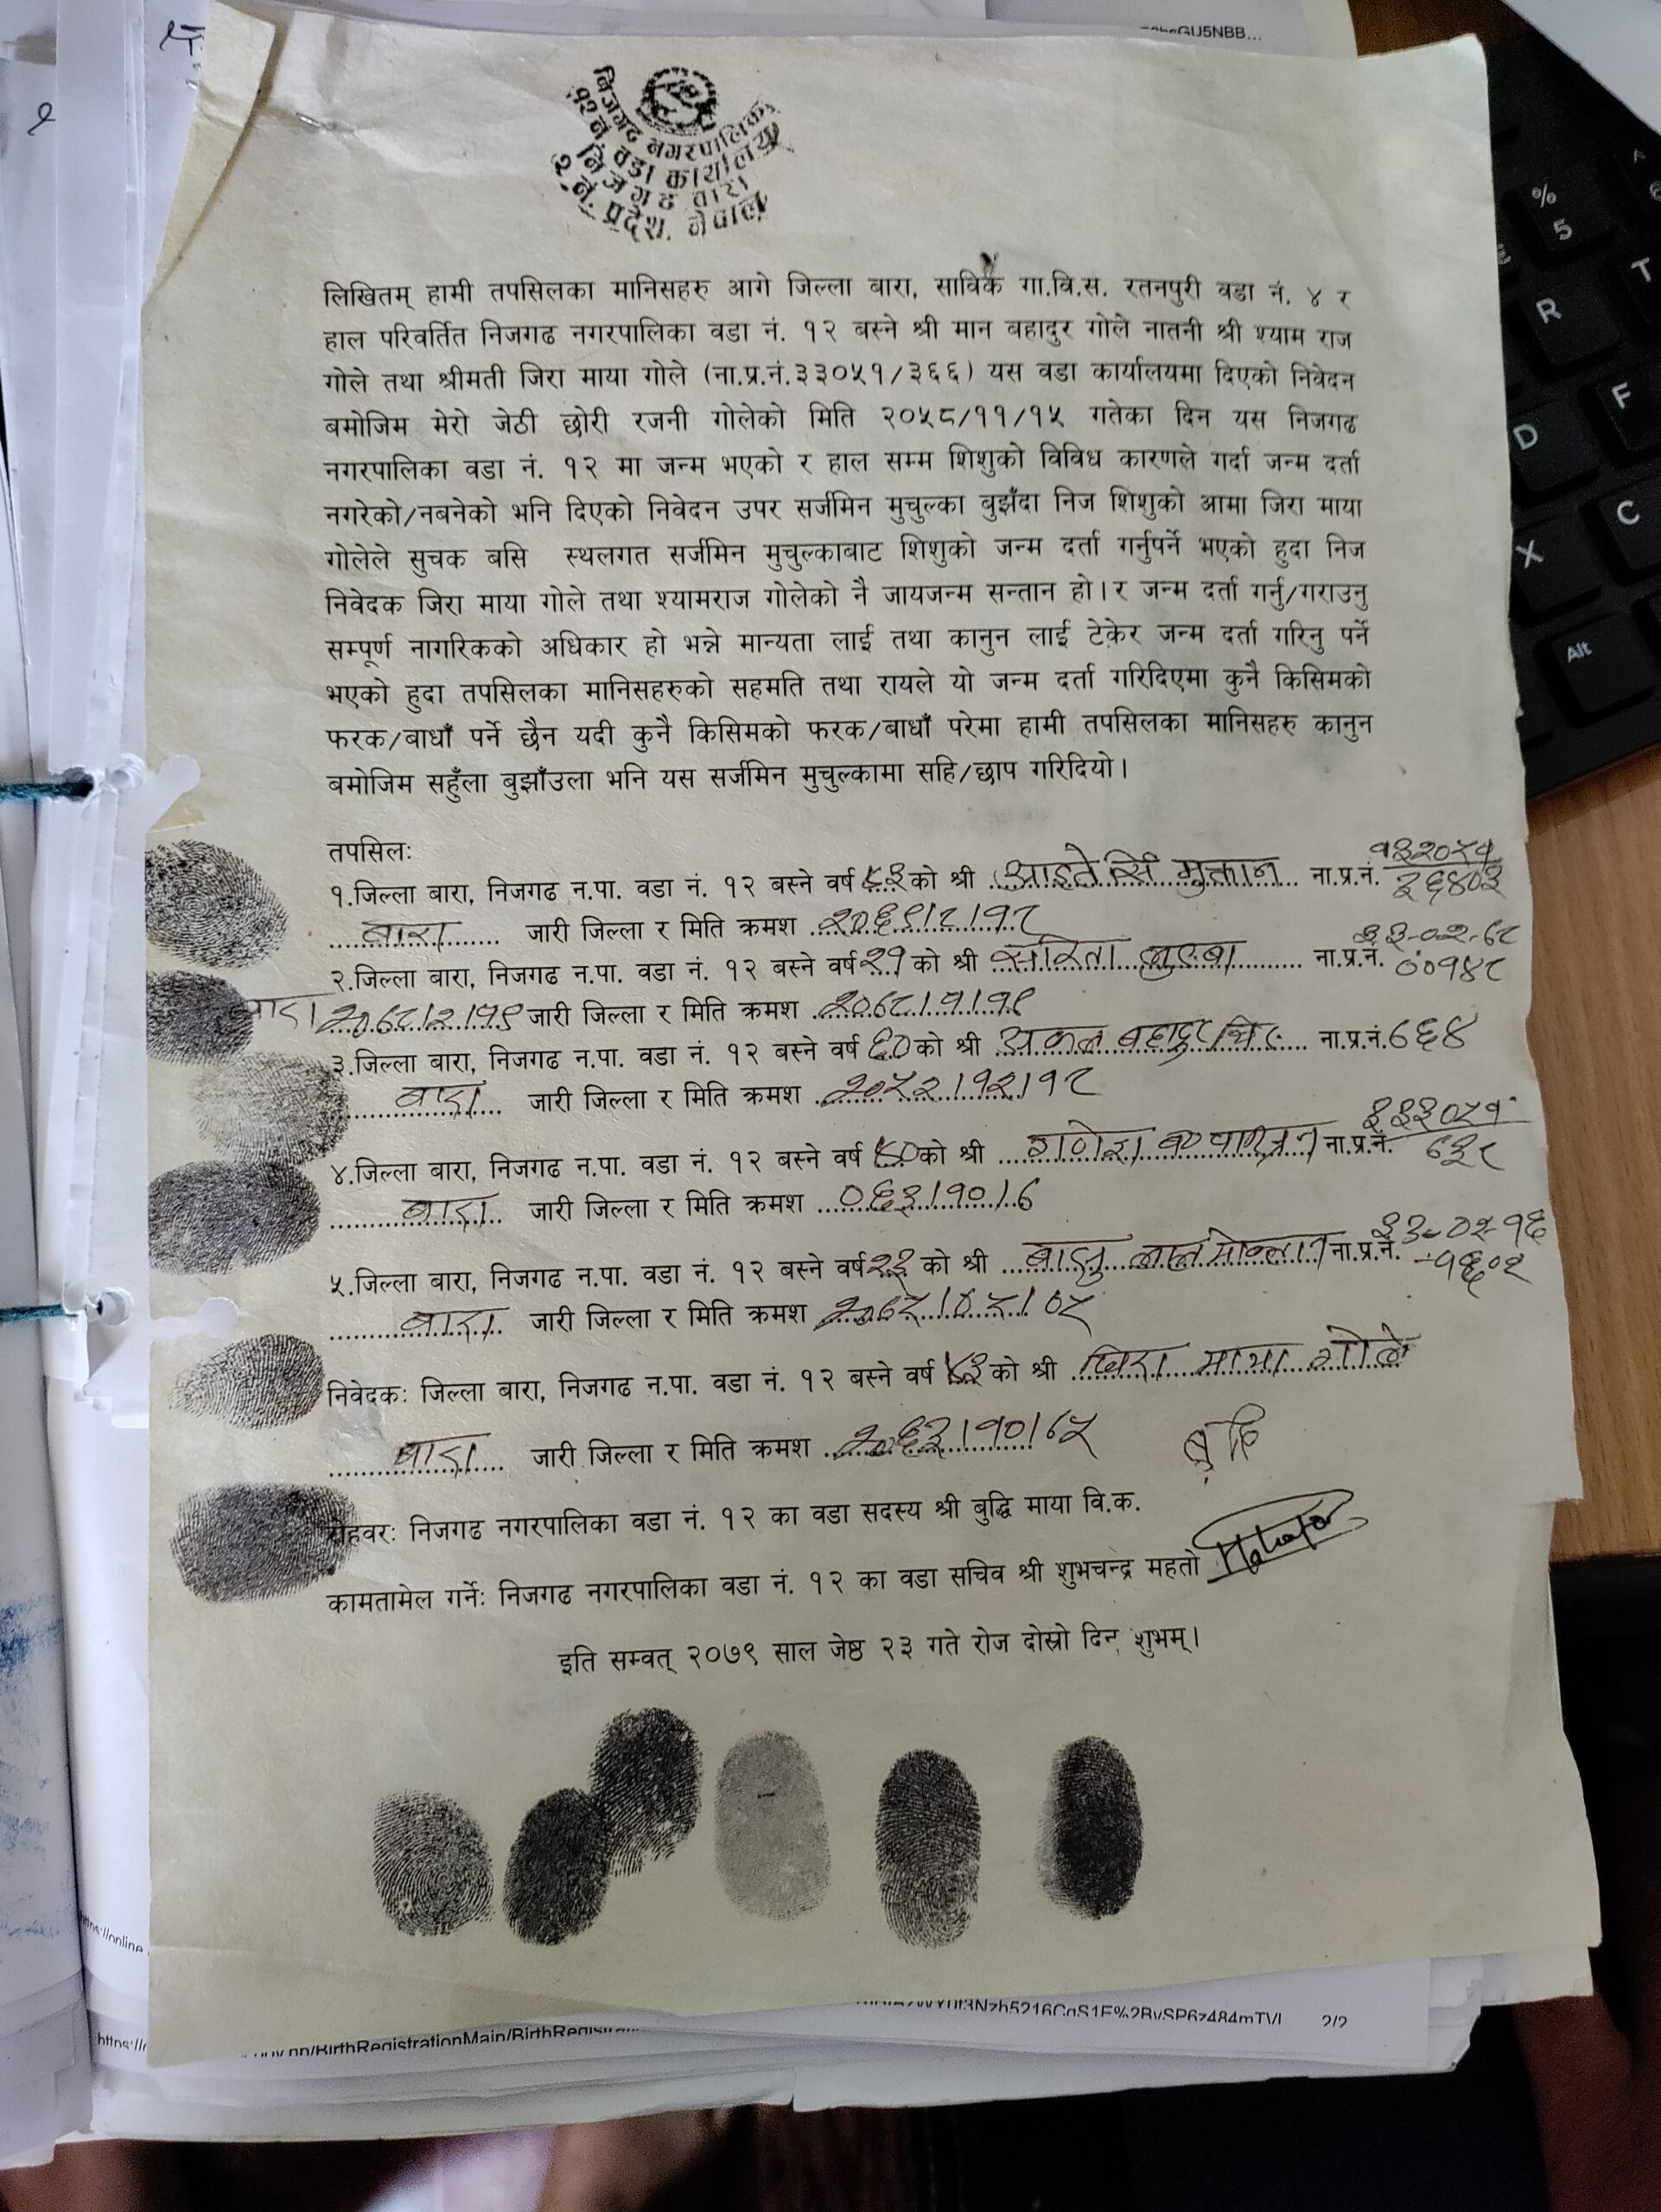 GU5NBB...
निजगढ नगरपालिका
१२ नं वडा कार्यालय
निजगढ बारा
२ नं. प्रदेश, नेपाल
लिखितम् हामी तपसिलका मानिसहरु आगे जिल्ला बारा, साविक गा.वि.स. रतनपुरी वडा नं. ४ र
हाल परिवर्तित निजगढ नगरपालिका वडा नं. १२ बस्ने श्री मान बहादुर गोले नातनी श्री श्याम राज
गोले तथा श्रीमती जिरा माया गोले (ना.प्र.नं.३३०५१/३६६) यस वडा कार्यालयमा दिएको निवेदन
बमोजिम मेरो जेठी छोरी रजनी गोलेको मिति २०५८/११/१५ गतेका दिन यस निजगढ
नगरपालिका वडा नं. १२ मा जन्म भएको र हाल सम्म शिशुको विविध कारणले गर्दा जन्म दर्ता
नगरेको/नबनेको भनि दिएको निवेदन उपर सर्जमिन मुचुल्का बुझँदा निज शिशुको आमा जिरा माया
गोलेले सुचक बसि स्थलगत सर्जमिन मुचुल्काबाट शिशुको जन्म दर्ता गर्नुपर्ने भएको हुदा निज
निवेदक जिरा माया गोले तथा श्यामराज गोलेको नै जायजन्म सन्तान हो।र जन्म दर्ता गर्नु/गराउनु
सम्पूर्ण नागरिकको अधिकार हो भन्ने मान्यता लाई तथा कानुन लाई टेकेर जन्म दर्ता गरिनु पर्ने
भएको हुदा तपसिलका मानिसहरुको सहमति तथा रायले यो जन्म दर्ता गरिदिएमा कुनै किसिमको
फरक/बाधाँ पर्ने छैन यदी कुनै किसिमको फरक/बाधाँ परेमा हामी तपसिलका मानिसहरु कानुन
बमोजिम सहुँला बुझाँउला भनि यस सर्जमिन मुचुल्कामा सहि/छाप गरिदियो।
तपसिलः
१.जिल्ला बारा, निजगढ न.पा. वडा नं. १२ बस्ने वर्ष ५३ को श्री आइते सिं मुक्तान ना.प्र.नं.
बारा जारी जिल्ला र मिति क्रमश २०६९।८।१८
२.जिल्ला बारा, निजगढ न.पा. वडा नं. १२ बस्ने वर्ष २१ को श्री सरिता ना.प्र.नं. ००१४८
बारा जारी जिल्ला र मिति क्रमश २०७८।१।१९
३.जिल्ला बारा, निजगढ न.पा. वडा नं. १२ बस्ने वर्ष ६० को श्री बहादुर ना.प्र.नं.७६४
बारा जारी जिल्ला र मिति क्रमश २०५२।१२।१८
४.जिल्ला बारा, निजगढ न.पा. वडा नं. १२ बस्ने वर्ष ५० को श्री गणेश ना.प्र.नं. ७३८
बारा जारी जिल्ला र मिति क्रमश ०६३।१०।७
५.जिल्ला बारा, निजगढ न.पा. वडा नं. १२ बस्ने वर्ष २३ को श्री लाल मोक्तान ना.प्र.नं.
बारा जारी जिल्ला र मिति क्रमश २०७५।०५।०५
निवेदकः जिल्ला बारा, निजगढ न.पा. वडा नं. १२ बस्ने वर्ष ५३ को श्री जिरा माया गोले
बारा जारी जिल्ला र मिति क्रमश
रोहवरः निजगढ नगरपालिका वडा नं. १२ का वडा सदस्य श्री बुद्धि माया वि.क.
कामतामेल गर्नेः निजगढ नगरपालिका वडा नं. १२ का वडा सचिव श्री शुभचन्द्र महतो
इति सम्वत् २०७९ साल जेष्ठ २३ गते रोज दोस्रो दिन शुभम्।
https://online
2/2
BirthRegistrationMain/
%
5
R
T
D
F
X
C
Alt